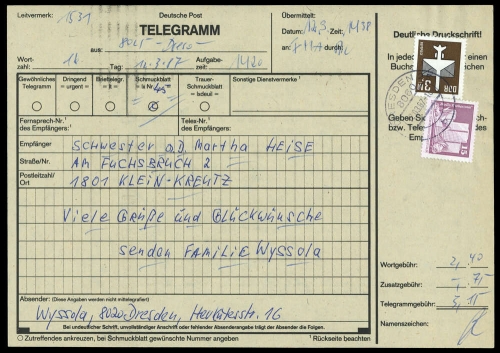 Leitvermerk: 1531
Deutsche Post
TELEGRAMM
Übermittelt:
Datum: 14.3. Zeit: 1438
aus: 8025 - Dresd -
an: durch:
Wortzahl: 14 Tag: 14.3.87 Aufgabezeit 1420
Deutliche Druckschrift!
In jedes
Buchs
Gewöhnliches Telegramm
Dringend = urgent =
Brieftelegr. = lt =
Schmuckblatt = lx Nr. 45 =
Trauer-Schmuckblatt = lxdeuil =
Sonstige Dienstvermerke ¹
DDR
15
Geben Si
bzw. Tele
Emp
Fernsprech-Nr.¹ des Empfängers:
Telex-Nr.¹ des Empfängers:
Empfänger Schwester a.D. Martha HEISE
Straße/Nr. AM FUCHSBRUCH 2
Postleitzahl/Ort 1801 KLEIN-KREUTZ
Viele Grüße und Glückwünsche
senden FAMILIE Wyssola
Wortgebühr: 2,40
Zusatzgebühr: -,75
Telegrammgebühr: 3,15
Namenszeichen:
Absender: (Diese Angaben werden nicht mittelegrafiert)
Wyssola, 8020 Dresden, 16
Bei undeutlicher Schrift, unvollständiger Anschrift oder fehlender Absenderangabe trägt der Absender die Folgen.
Zutreffendes ankreuzen, bei Schmuckblatt gewünschte Nummer angeben
¹ Rückseite beachten